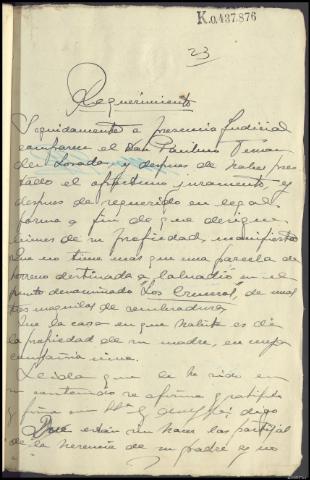 K.0.437.876
23
Requerimiento
Seguidamente a presencia Judicial
comparece el Don Paulino
Losada, y despues de haber pres
tado el oportuno juramento, y
despues de requerido en legal
forma a fin de que designe
bienes de su propiedad, manifiesta
Que no tiene mas que una parcela de
terreno destinada a labradio en el
punto denominado "Los", de unos
tres maquilas de sembradura
Que la casa en que habita es de
la propiedad de su madre, en cuya
compañia vive.
Leida que le ha sido en
su contenido se afirma y ratifica
y firma con S.Sª digo
Que estan sin hacer las partijas
de la herencia de su padre y no